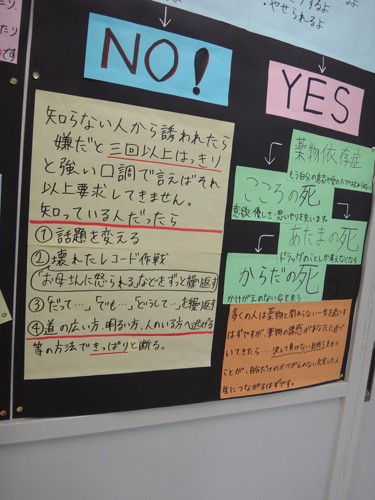 やせられるよ
NO!
知らない人から誘われたら
嫌だと三回以上はっきり
と強い口調で言えばそれ
以上要求してきません。
知っている人だったら
①話題を変える
②壊れたレコード作戦
「お母さんに怒られる」などをずっと繰り返す
③「だって…」「でも…」「どうして…」を繰り返す
④道の広い方、明るい方、人のいる方へ逃げる
等の方法できっぱりと断る。
YES
薬物依存症
こころの死
意欲、優しさ、思いやりを失います。
あたまの死
ドラッグのことしか考えなくなる
からだの死
かけがえのない命を失う
多くの人は薬物と関わらない一生を過ごす
はずですが、薬物の誘惑があなたに近づ
いてきたら…決して負けない気持ちをもつ
ことが、自分だけのかけがえのない充実した人
生につながるはずです。